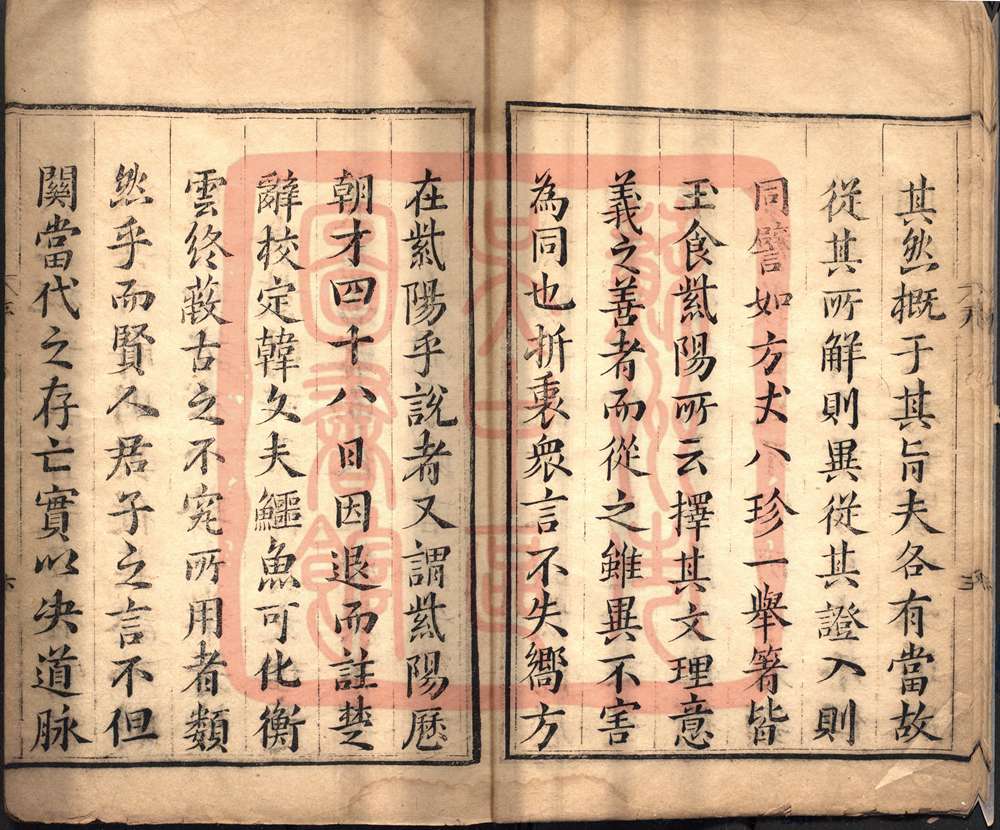 其然概于其旨夫各有當故
從其所解則異從其證入則
同譬如方丈八珍一舉箸皆
王食紫陽所云擇其文理意
義之善者而從之雖異不害
為同也折衷眾言不失嚮方
在紫陽乎說者又謂紫陽歷
朝才四十八日因退而註楚
辭校定韓文夫鱷魚可化衡
雲終蔽古之不究所用者類
然乎而賢人君子之言不但
關當代之存亡實以決道脉